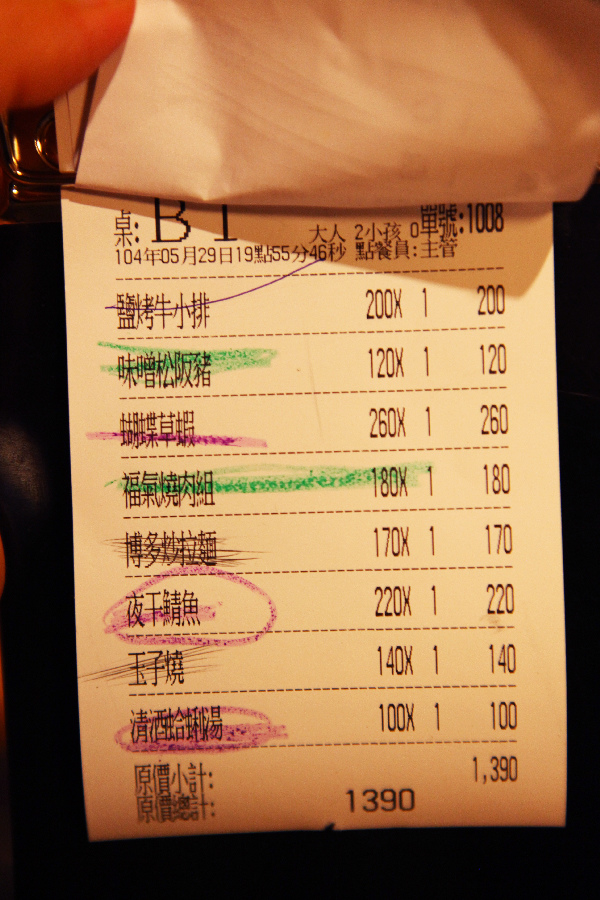 桌: B1 大人 2小孩 0單號:1008
104年05月29日19點55分46秒 點餐員:主管
鹽烤牛小排 200X 1 200
味噌松阪豬 120X 1 120
蝴蝶草蝦 260X 1 260
福氣燒肉組 180X 1 180
博多炒拉麵 170X 1 170
夜干鯖魚 220X 1 220
玉子燒 140X 1 140
清酒蛤蜊湯 100X 1 100
原價小計: 1,390
原價總計: 1390